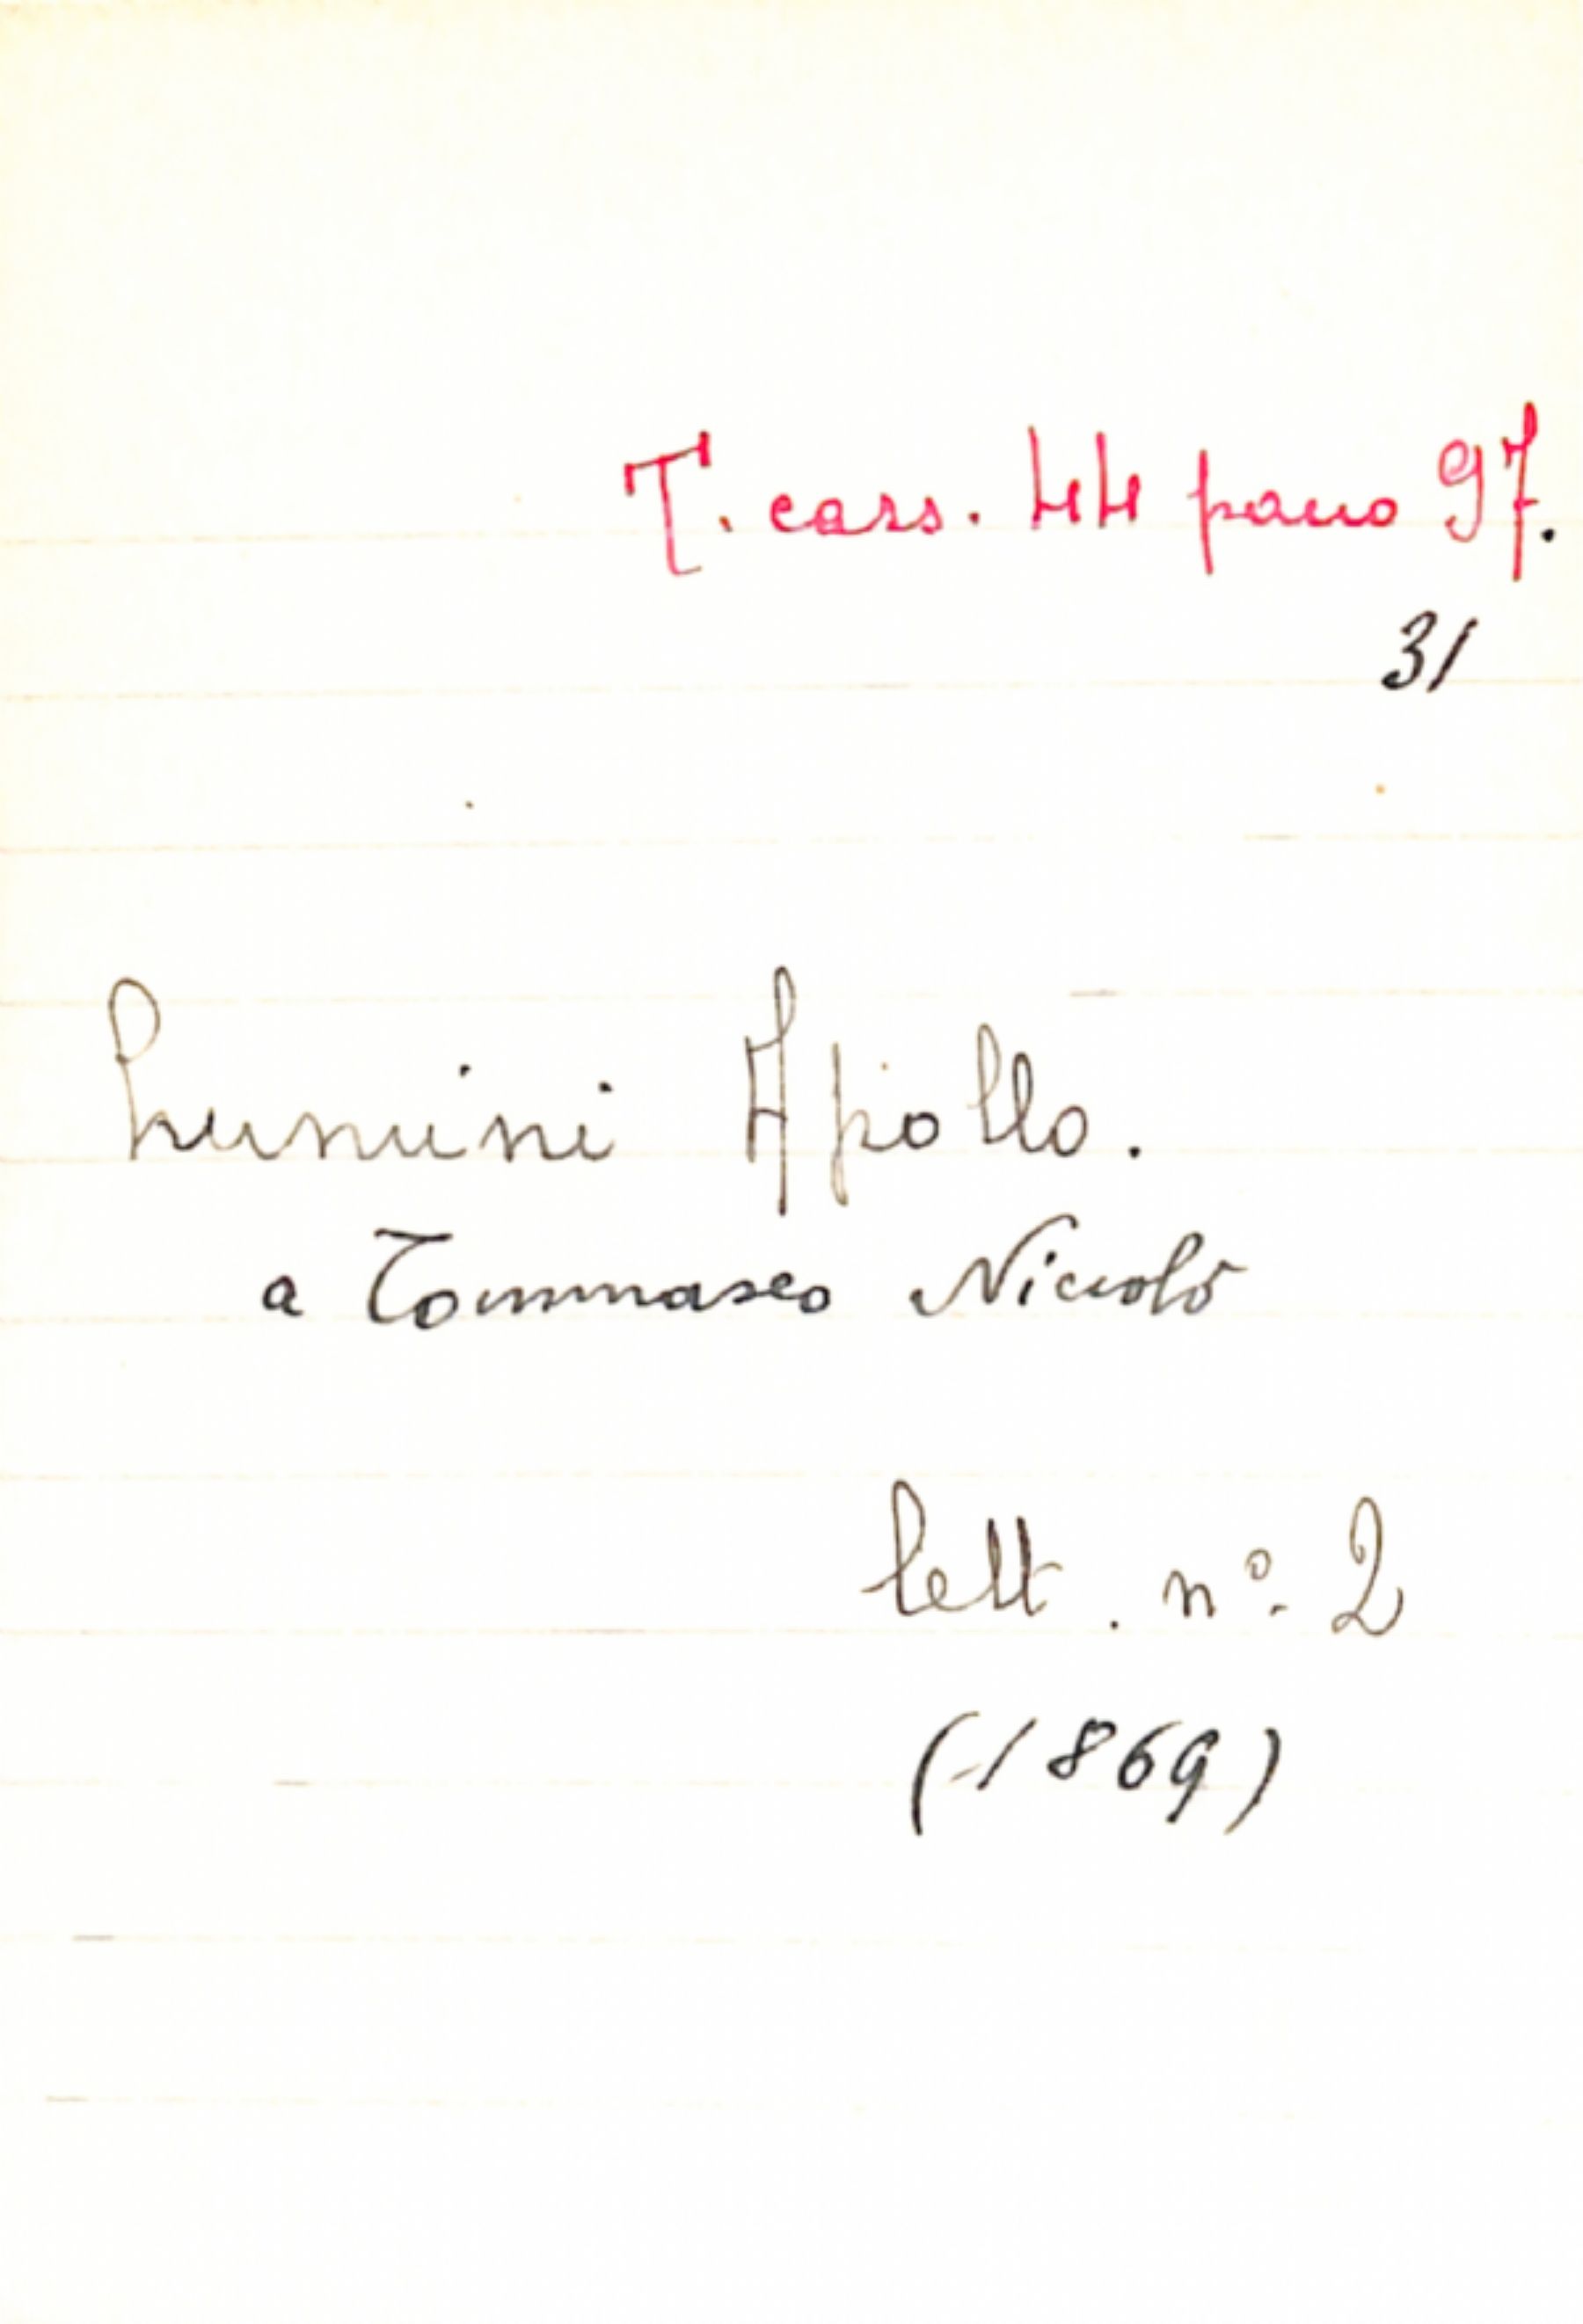 T. cass. 44 pacco 97.
31
Lumini Apollo.
a Tommaseo Niccolò
lett. nº. 2
(1869)